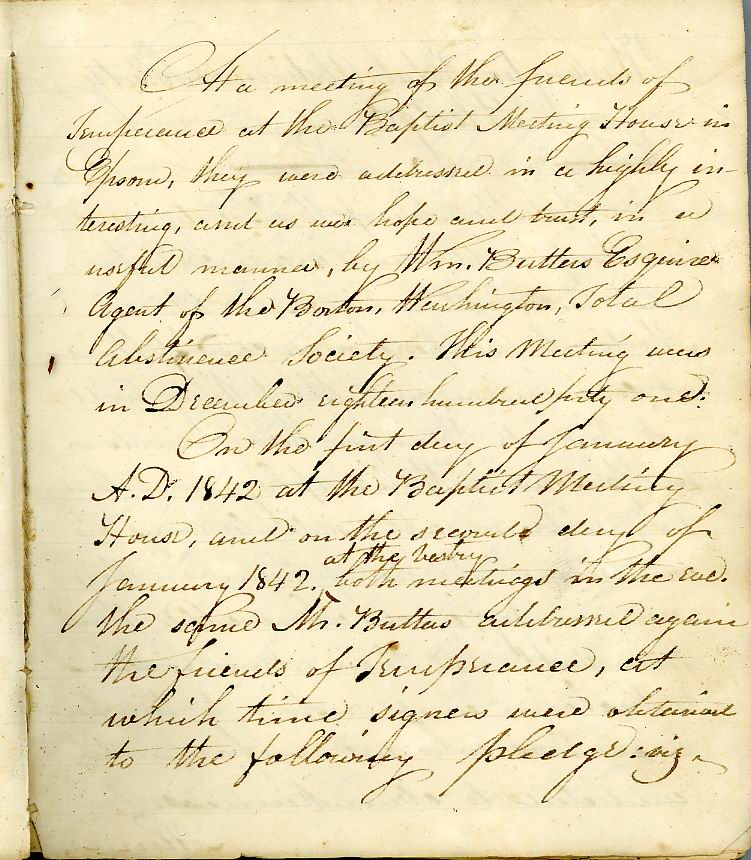 At a meeting of the friends of
Temperance at the Baptist Meeting House in
Epsom, they were addressed in a highly in-
teresting, and as we hope and trust, in a
useful manner, by Wm. Butters Esquire
Agent of the Boston, Washington, Total
Abstinence Society. This Meeting was
in December eighteen hundred forty one.
On the first day of January
A.D. 1842 at the Baptist Meeting
House, and on the second day of
at the vestry
January 1842. both meetings in the eve.
the same Mr. Butters addressed again
the friends of Temperance, at
which time signers were obtained
to the following pledge: viz.